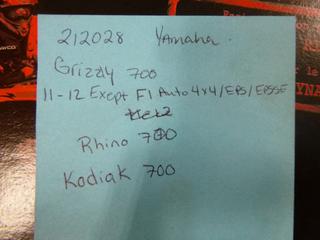 212028 Yamaha.
Grizzly 700
11-12 Exept FI Auto 4x4/EPS/EPSSE
Rhino 700
Kodiak 700